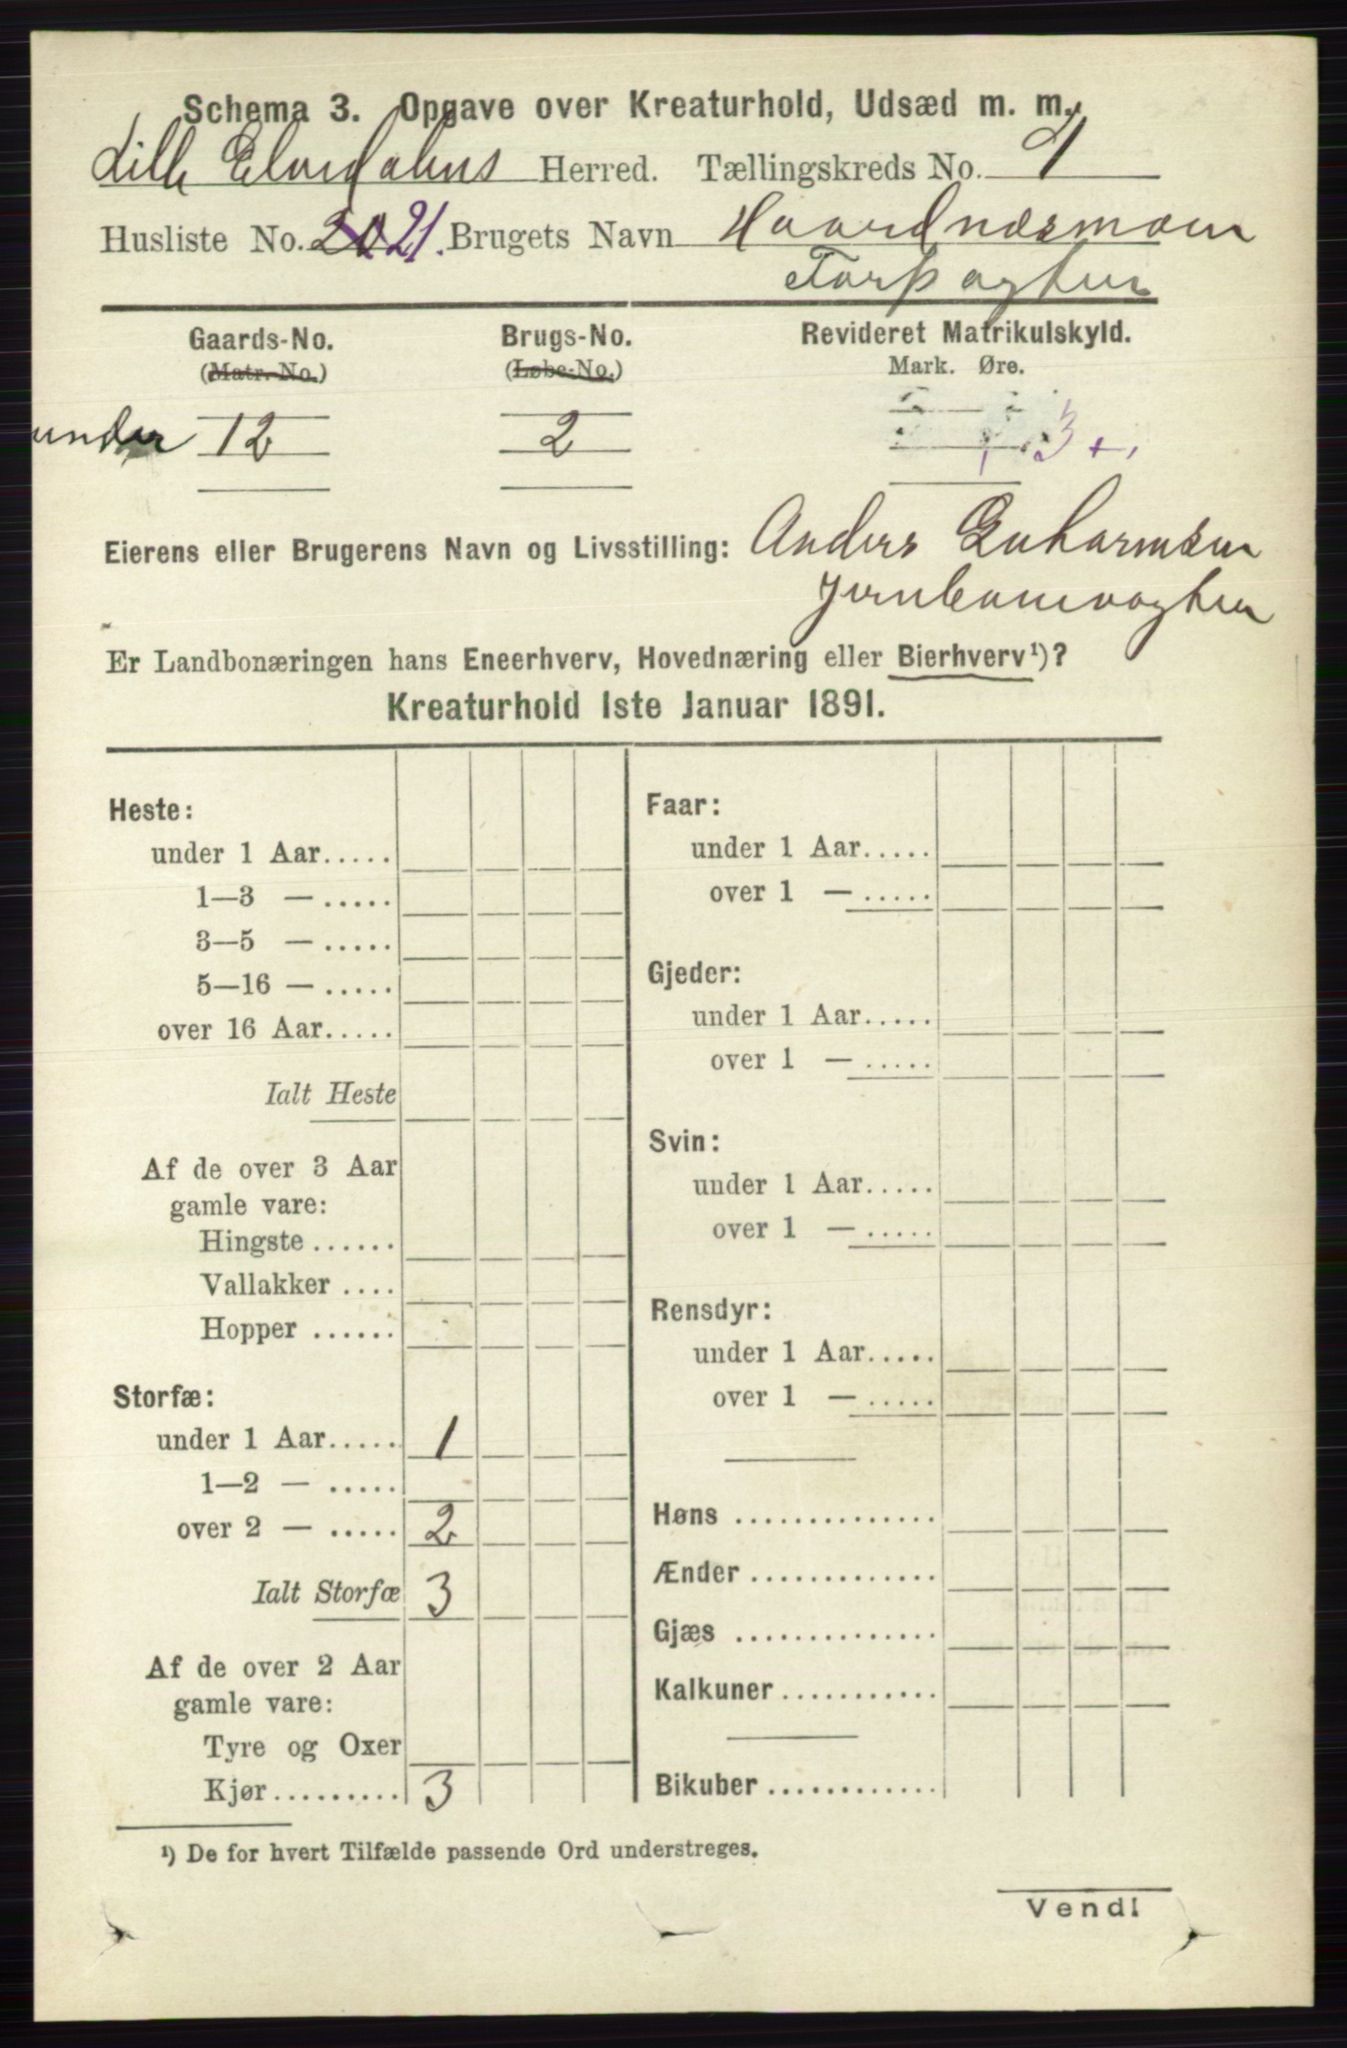 Schema 3. Opgave over Kreaturhold, Udsæd m. m.
Lille Elvedalens Herred. Tællingskreds No. 1
Husliste No. 21. Brugets Navn
Gaards-No. Brugs-No. Revideret Matrikulskyld.
(Matr.-No.) (Løbe-No.) Mark. Øre.
under 12 2 3 +
Eierens eller Brugerens Navn og Livsstilling: Anders
Jernbanevogter
Er Landbonæringen hans Eneerhverv, Hovednæring eller Bierhverv¹)?
Kreaturhold 1ste Januar 1891.
Heste:
under 1 Aar.....
1—3 — .....
3—5 — .....
5—16 — .....
over 16 Aar.....
Ialt Heste
Af de over 3 Aar
gamle vare:
Hingste ......
Vallakker ....
Hopper ......
Storfæ:
under 1 Aar..... 1
1—2 — .....
over 2 — ..... 2
Ialt Storfæ 3
Af de over 2 Aar
gamle vare:
Tyre og Oxer
Kjør......... 3
Faar:
under 1 Aar.....
over 1 — .....
Gjeder:
under 1 Aar.....
over 1 — .....
Svin:
under 1 Aar.....
over 1 — .....
Rensdyr:
under 1 Aar.....
over 1 — .....
Høns ..............
Ænder .............
Gjæs ..............
Kalkuner...........
Bikuber ............
¹) De for hvert Tilfælde passende Ord understreges.
Vend!